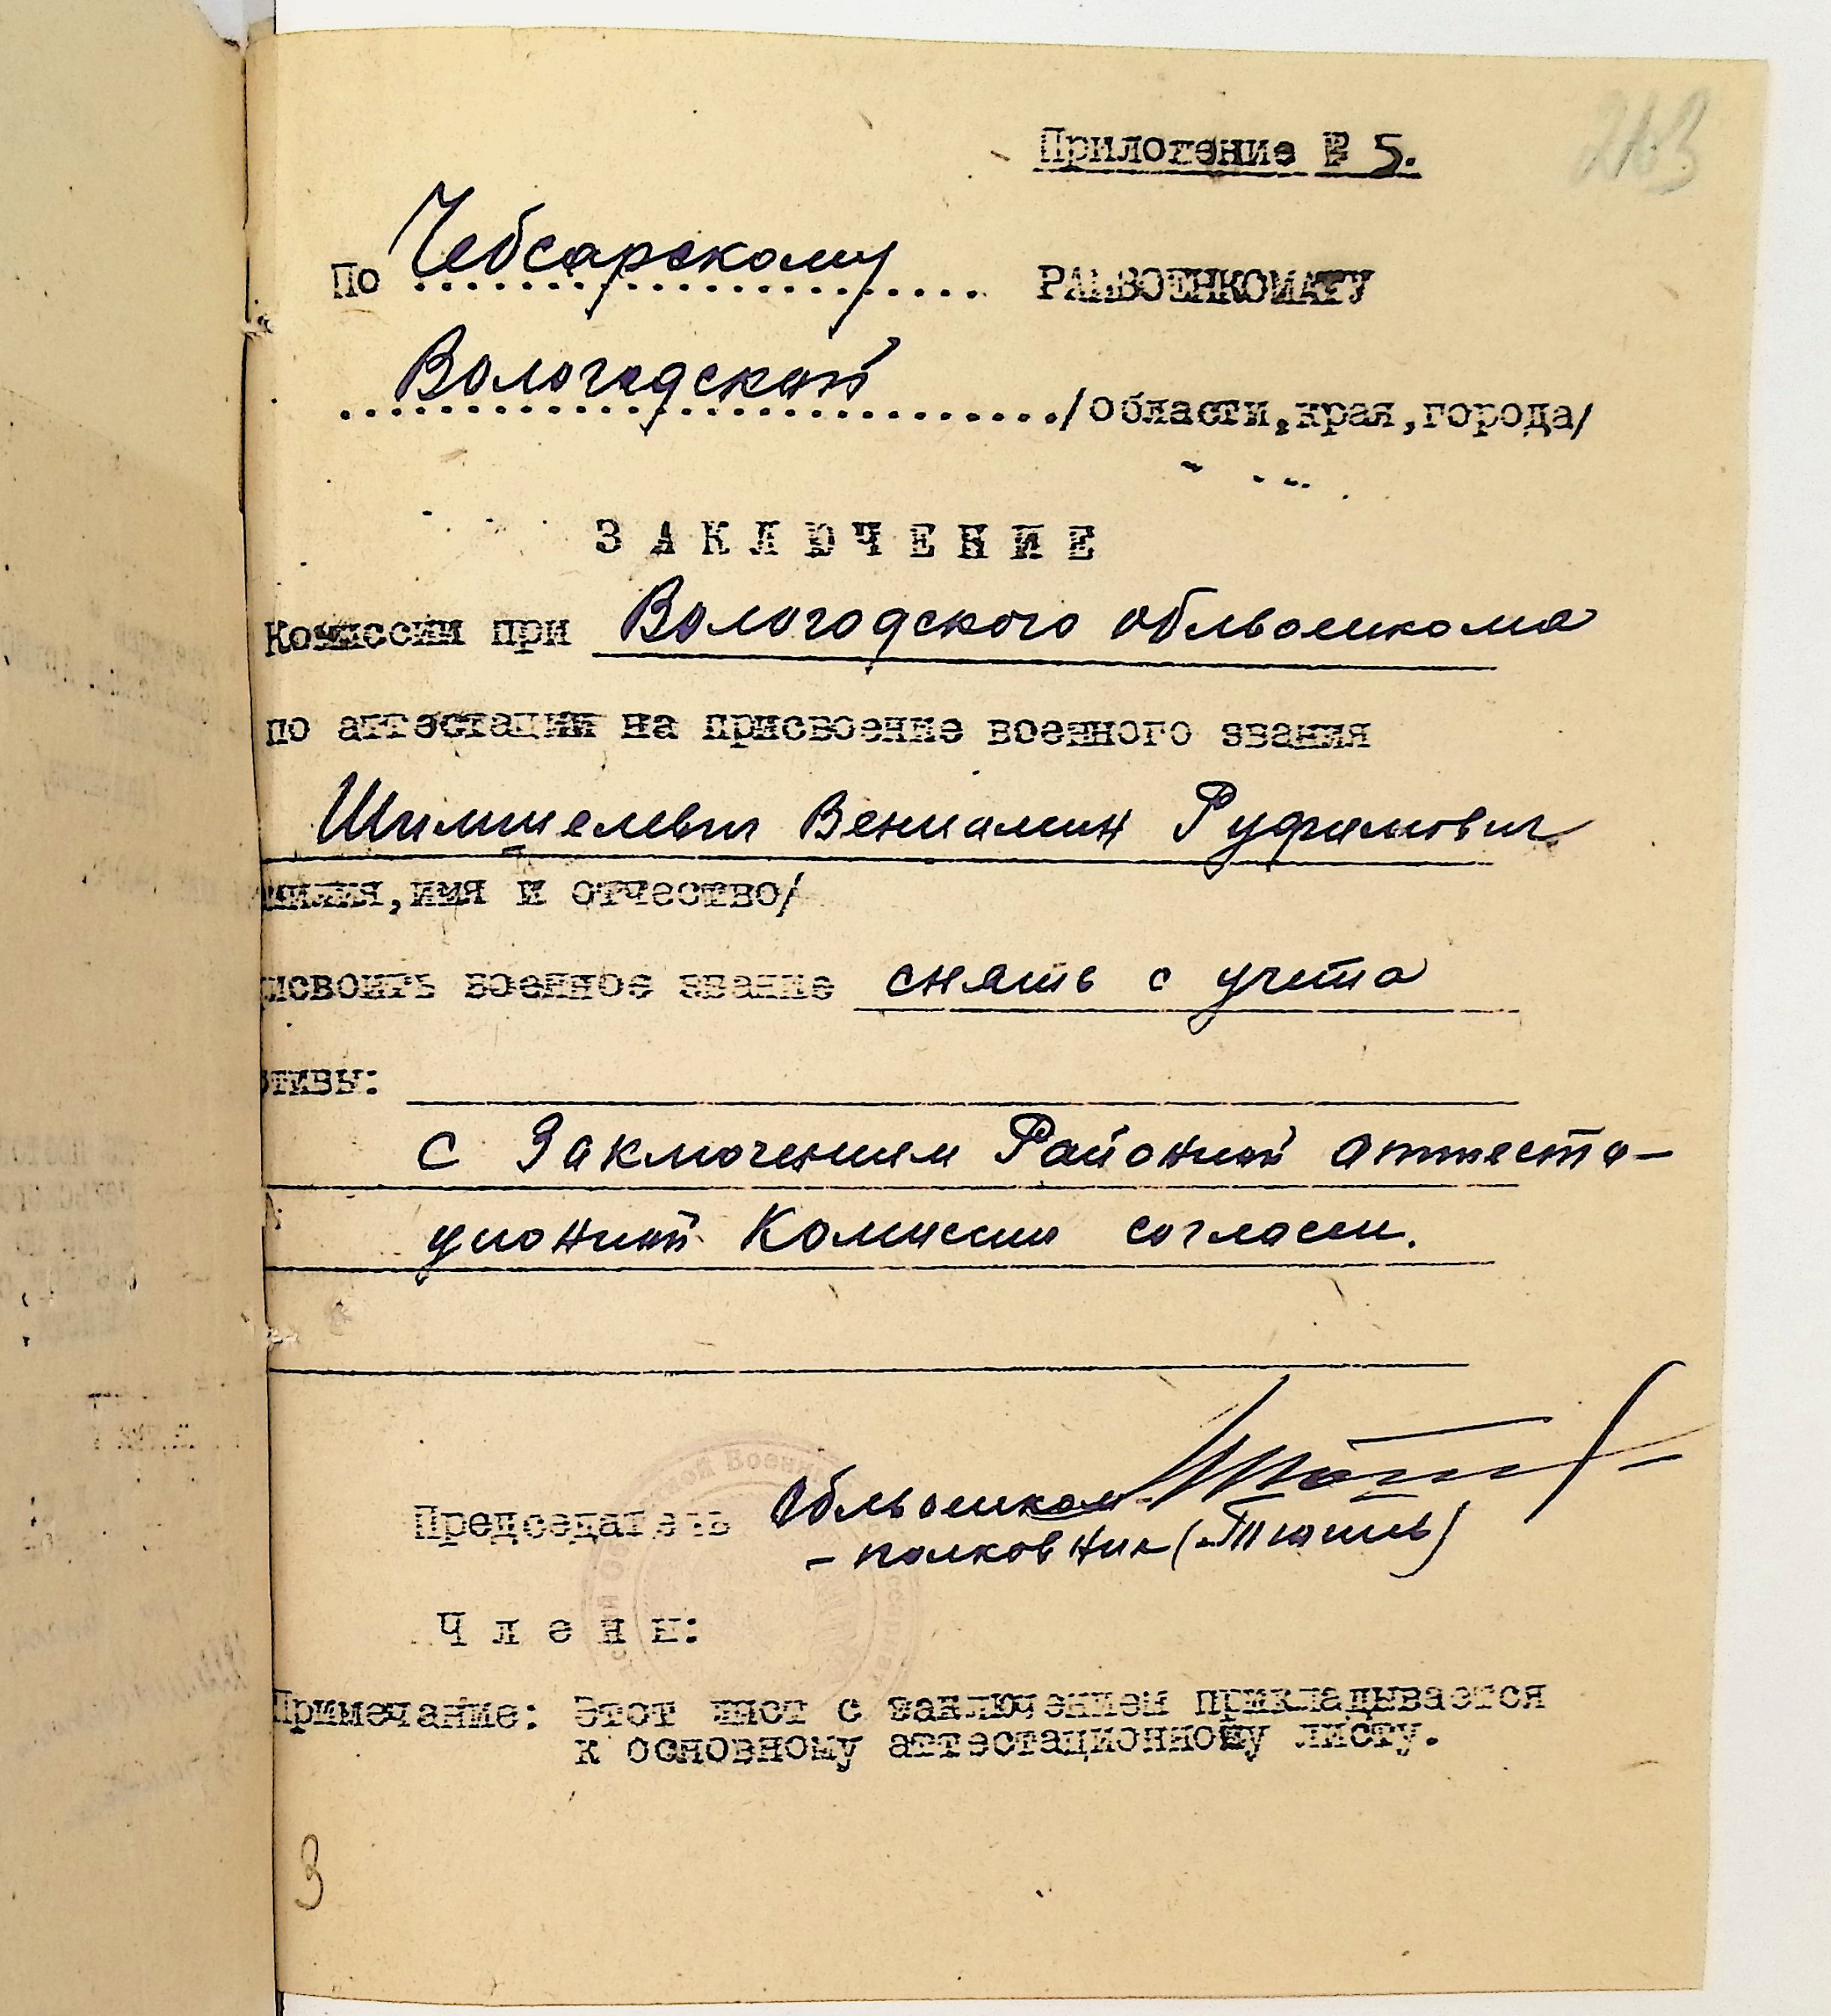 263
Приложение № 5.
По Чебсарскому РАЙВОЕНКОМАТУ
Вологодской /области,края,города/
ЗАКЛЮЧЕНИЕ
Комиссии при Вологодского облвоенкома
по аттестации на присвоение военного звания
Шимшелевич Вениамин Руфимович
милия,имя и отчество/
исвоить военное звание снять с учета
отивы:
С Заключением Районной аттеста-
ционной Комиссии согласен.
Председатель Облвоенком
- полковник (Тюшев)
Члены:
Примечание: Этот лист с заключением прикладывается
к основному аттестационному листу.
3